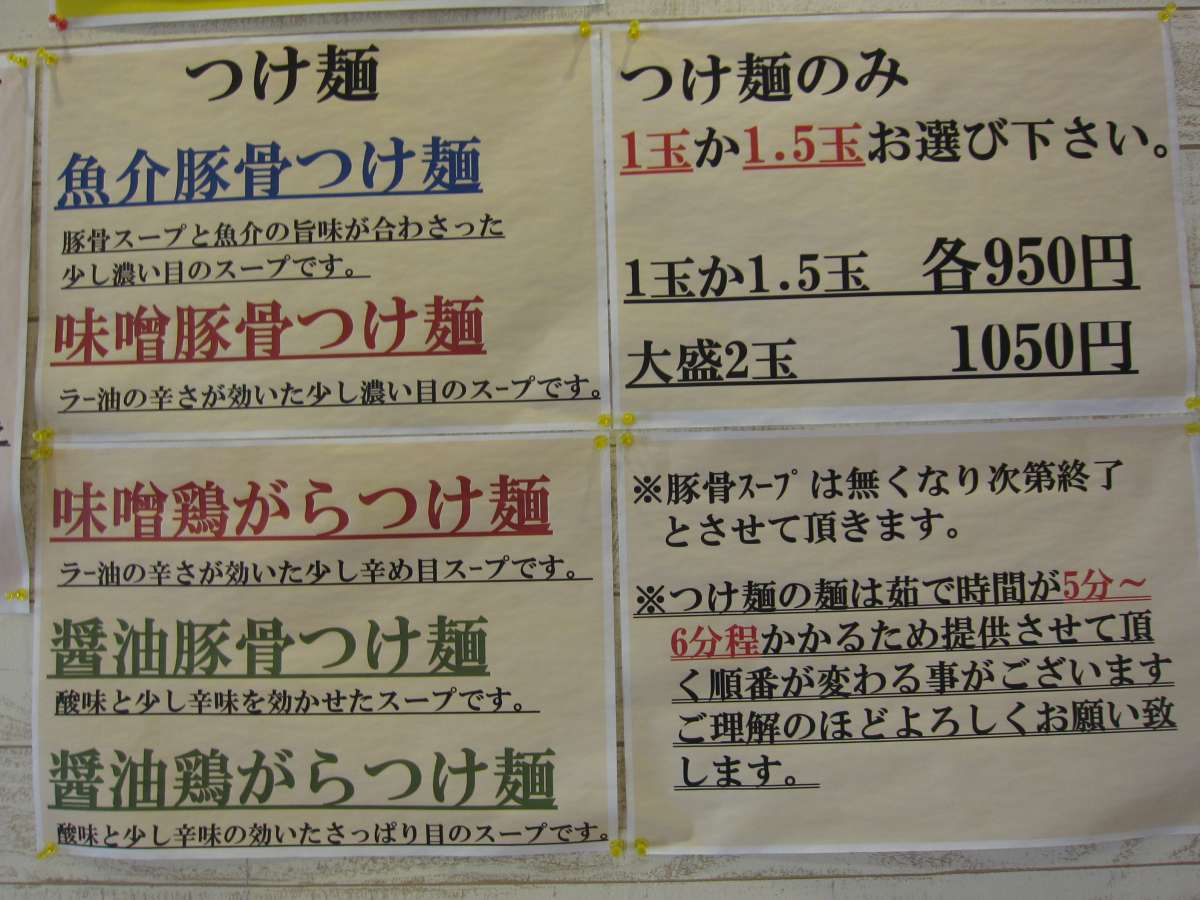 つけ麺
魚介豚骨つけ麺
豚骨スープと魚介の旨味が合わさった
少し濃い目のスープです。
味噌豚骨つけ麺
ラー油の辛さが効いた少し濃い目のスープです。
味噌鶏がらつけ麺
ラー油の辛さが効いた少し辛め目スープです。
醤油豚骨つけ麺
酸味と少し辛味を効かせたスープです。
醤油鶏がらつけ麺
酸味と少し辛味の効いたさっぱり目のスープです。
つけ麺のみ
1玉か1.5玉お選び下さい。
1玉か1.5玉 各950円
大盛2玉 1050円
※豚骨ｽｰﾌﾟは無くなり次第終了
とさせて頂きます。
※つけ麺の麺は茹で時間が5分～
6分程かかるため提供させて頂
く順番が変わる事がございます
ご理解のほどよろしくお願い致
します。